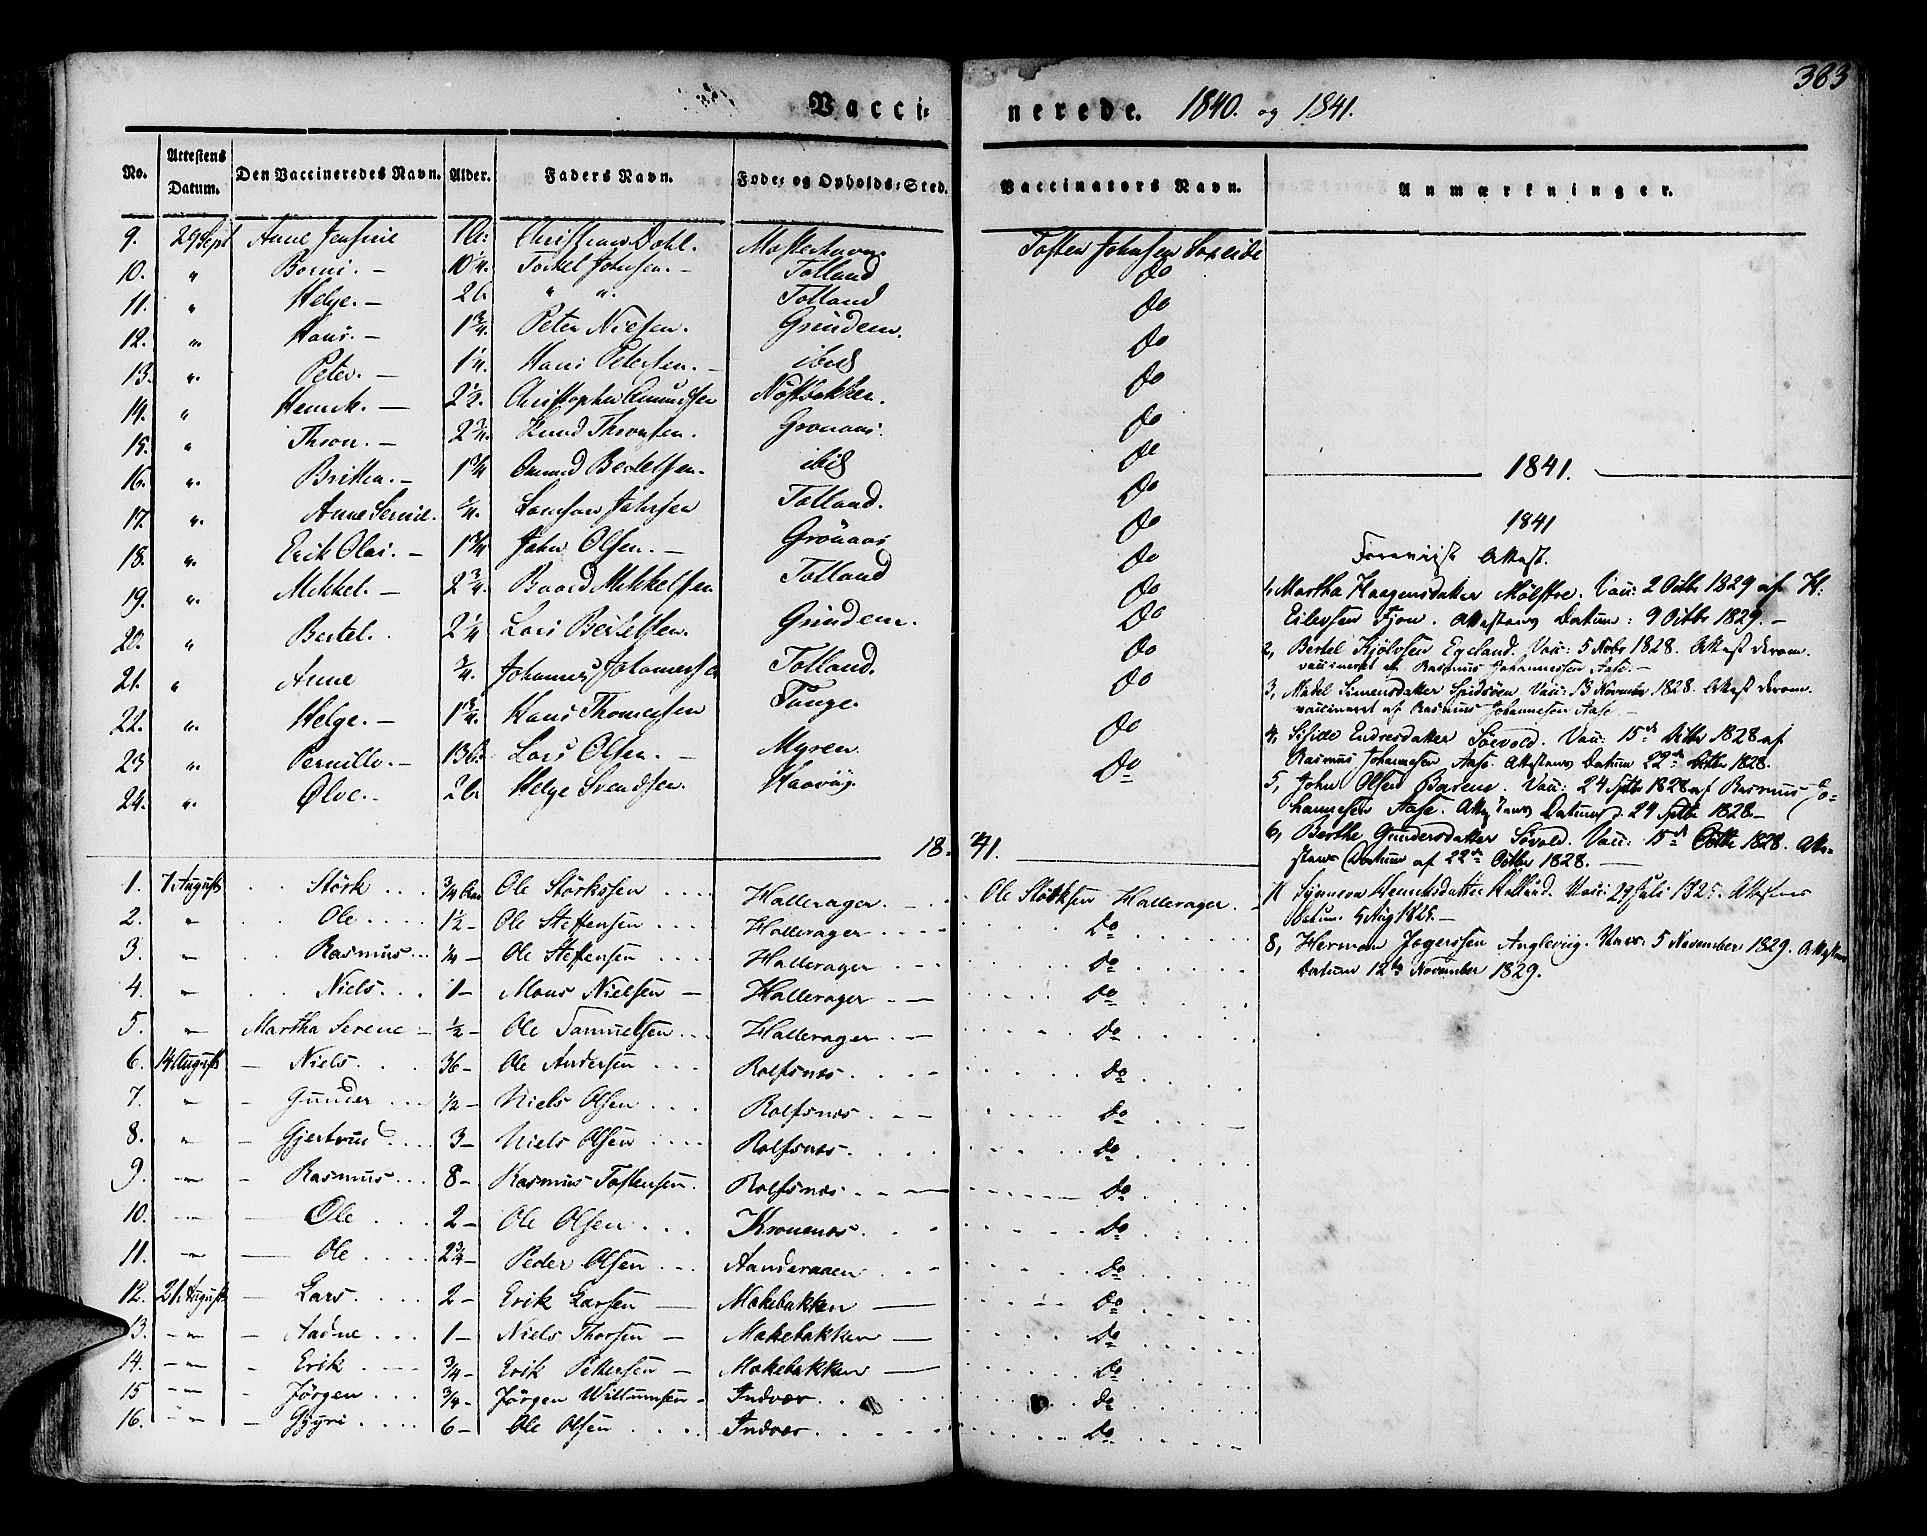 383
Vacci- nerede. 1840. og 1841.
No. Attestens Datum. Den Vaccineredes Navn. Alder. Faders Navn. Føde- og Opholds-Sted. Vaccinators Navn. Anmærkninger.
9. 29 Sept Anne Christian Dahl. Mosterhavn. Tosten Johnsen
10. " - 10 1/4. Torkel Johnsen. - Totland do
11. " Helge. - " " Totland do
12. " Hans. - 1 3/4. Peter Nielsen. Grindem. do
13. " Peter. - 1/4. Hans Petersen. - ibid do
14. " Henrik. - 2 1/2. Christopher Amundsen do
15. " Thron. - 2 3/4. Knud Thronsen. Grönaas. do
16. " Britha. - 1 3/4 Amund Bertelsen. ibid do
17. " Anne Serine. 3/4. Johnsen Totland. do
18. " Erik Olai. - 1 3/4 John Olsen. - Grönaas do
19. " Mikkel. - 2 3/4. Baard Mikkelsen Totland do
20. " Bertel. 2 1/4 Lars Bertelsen. Grindem. do
21. " Anne 3/4. Johannes Johannessen Totland. do
22. " Helge. - 1 3/4. Hans Thomessen do
23 " Pernille. - Lars Olsen. - Myren do
24. " Ølve. - Helge Svendsen. Haavig. do
1841.
1. 7 August . . Störk . . . 3/4 Aar Ole Störksen . . . Hallerager. - . . Ole Störksen Hallerager.
2. " . . Ole . . . . 1 1/2 - Ole Steffensen . . . Hallerager . . . . Do
3. " Rasmus . . . 1/4 - Ole Steffensen . . . Hallerager . . . Do
4. " Niels . . . 1 - Mons Nielsen - Hallerager - — Do
5. " Martha Serene - 1/2 - Ole Samuelsen . . . Hallerager - — Do
6. 14 August - Niels. . . . 36 - Ole Andersen . . . Rolfsnes. . . . Do
7. " - Gunder . . . 1/2 - Niels Olsen . . . Rolfsnes . - — Do
8. " - Gjertrud . . . 3 - Niels Olsen . . . . Rolfsnes. . . . Do
9. " - Rasmus . . . 8 - Rasmus Tostensen. Rolfsnes . . — Do
10. " — Ole . . . . 2 - Ole Olsen . . . Kronenes. . . Do
11. " — Ole . . . . 2 3/4 - Peder Olsen . . . Aanderaaen . . Do
12. 21. August - Lars. . . . 2 - Erik Larsen — Mokebakken — Do
13. " - Aadne . . . 1 - Niels Thorsen - Mokebakken — Do
14. " - Erik . . . . 3/4 - Erik Pettersen - Mokebakken — Do
15 " - Jörgen . . . 3/4 - Jörgen Willumsen - Indvær. . . . Do
16. " - Gyri . . . . 6 - Ole Olsen . . . . Indvær . . . . Do
1841.
1841
Foreviist Attest.
1, Martha Haagensdatter Mölstre. Vacc: 2 Octbr 1829 af H:
Eilevsen Fjon. Attestens Datum: 9 Octbr 1829. -
2, Bertel Kjölvsen Egeland. Vacc: 5 Novbr 1828. Attest derom.
vaccineret af Rasmus Johannessen Aase. -
3, Madel Simensdatter Spidsöen. Vacc: 13 November 1828. Attest derom.
vaccineret af Rasmus Johannesen Aase -
4, Endresdatter Söevold. Vacc: 15de Octbr 1828 af
Rasmus Johannesen Aase. Attestens Datum 22de Octbr 1828.
5, John Olsen Vacc: 24 Septbr 1828 af Rasmus Jo-
hannesen Aase. Attestens Datum d. 24 Septbr 1828. -
6, Berthe Gundersdatter Sövold. Vacc: 15de Octbr 1828. Atte-
stens Datum af 22de Octbr 1828. —
Henriksdatter Vacc: 29 Juli 1825. Attestens
Datum. 5 Aug 1825. -
8, Herman Angleviig. Vacc: 5 November 1829. Attestens
Datum 12te November 1829.